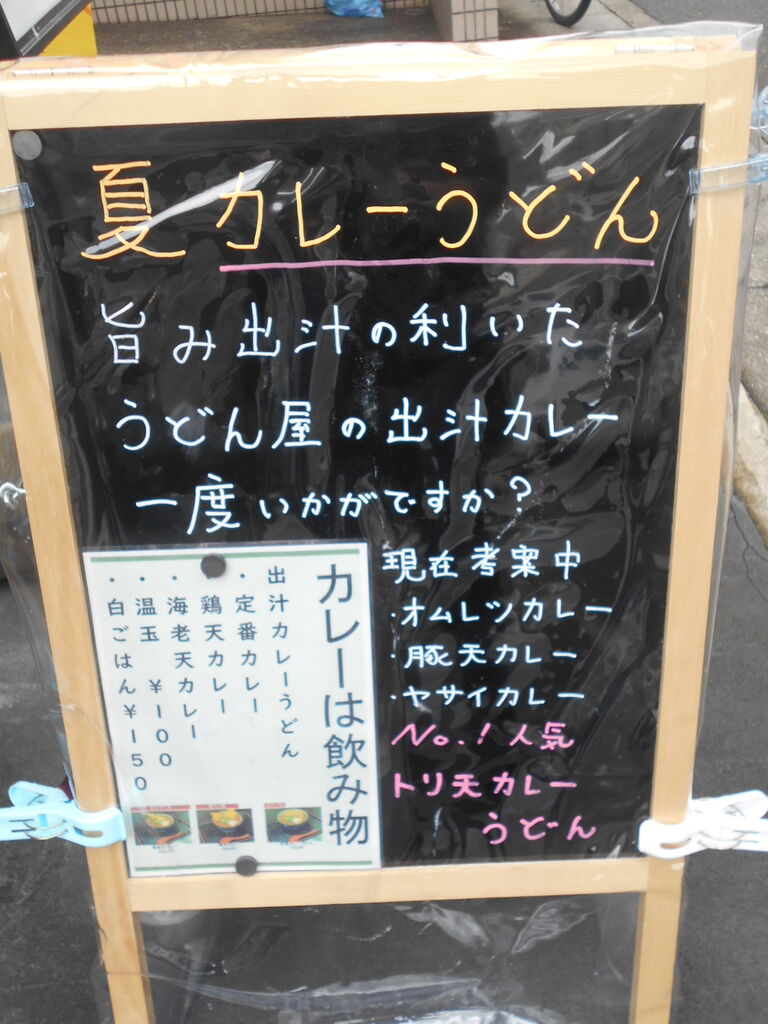 夏 カレーうどん
旨み出汁の利いた
うどん屋の出汁カレー
一度いかがですか?
現在考案中
・オムレツカレー
・豚天カレー
・ヤサイカレー
No.!人気
トリ天カレー
うどん
カレーは飲み物
出汁カレーうどん
・定番カレー
・鶏天カレー
・海老天カレー
・温玉 ¥100
・白ごはん¥150